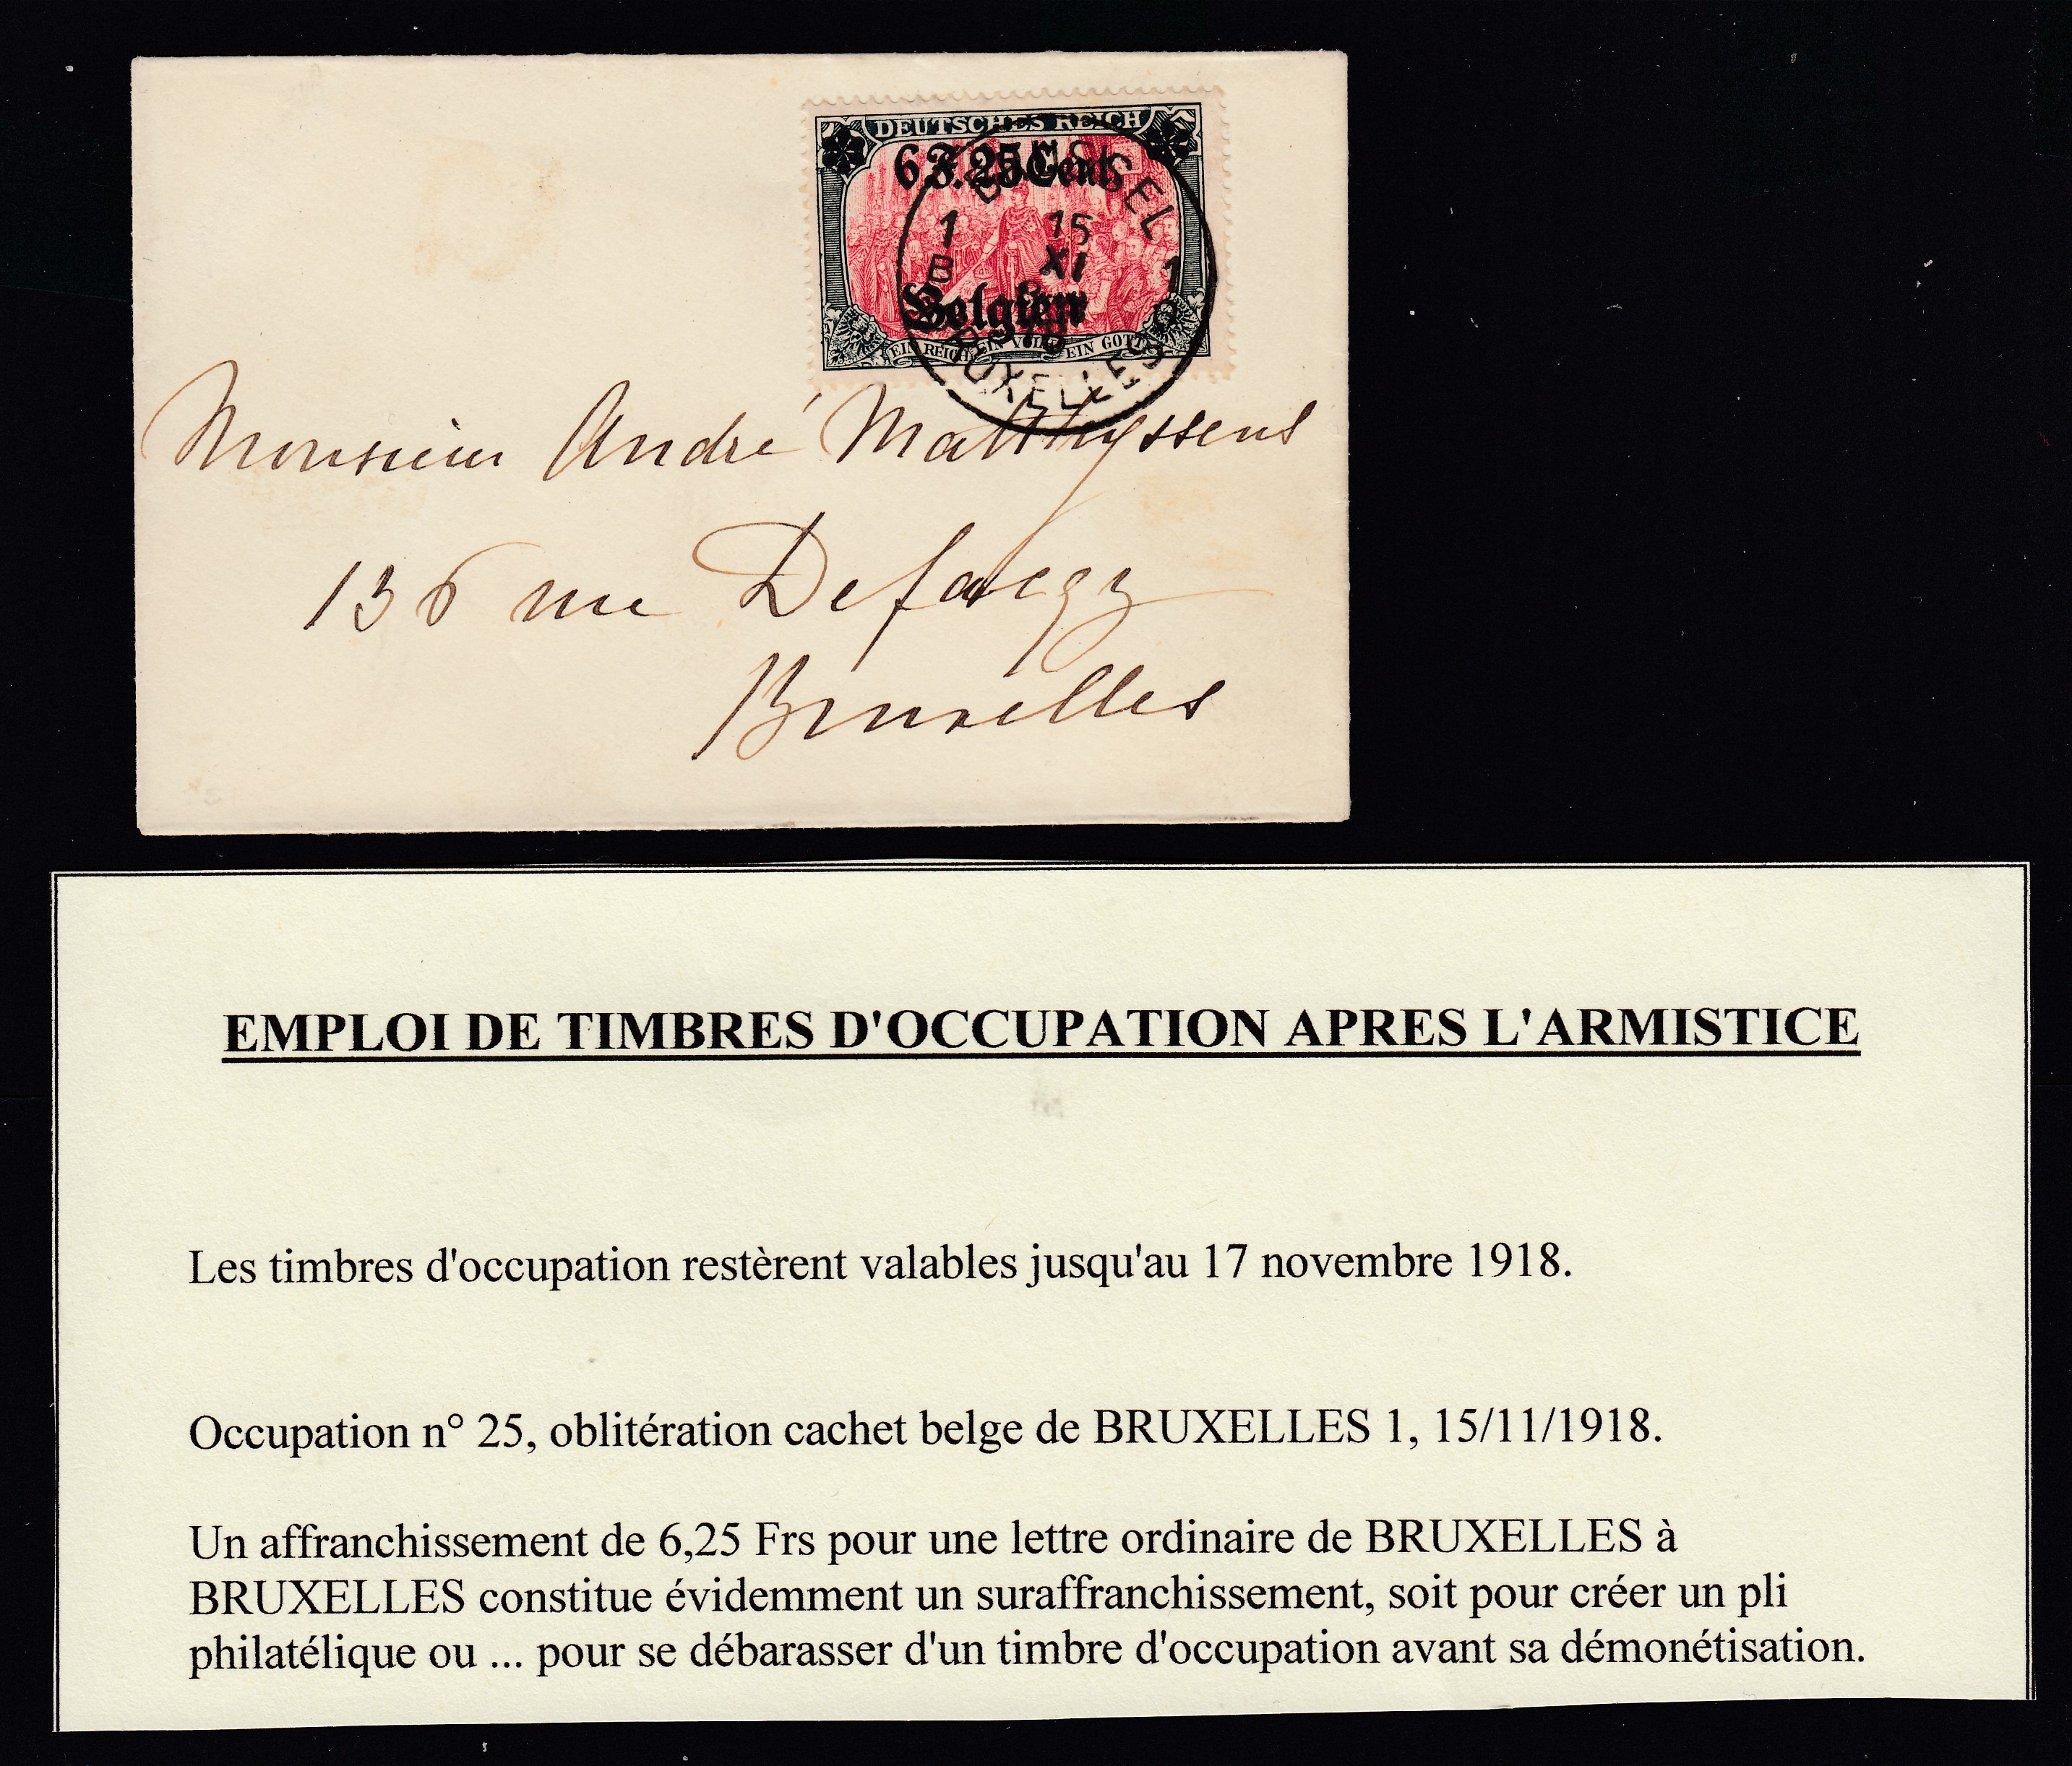 DEUTSCHES REICH
6 F. 25 Cent.
BRÜSSEL
1 15
B XI 1
Belgien
EIN REICH EIN VOLK EIN GOTT
BRUXELLES
Monsieur André Matthyssens
136 rue Defacqz
Bruxelles
EMPLOI DE TIMBRES D'OCCUPATION APRES L'ARMISTICE
Les timbres d'occupation restèrent valables jusqu'au 17 novembre 1918.
Occupation n° 25, oblitération cachet belge de BRUXELLES 1, 15/11/1918.
Un affranchissement de 6,25 Frs pour une lettre ordinaire de BRUXELLES à
BRUXELLES constitue évidemment un suraffranchissement, soit pour créer un pli
philatélique ou ... pour se débarasser d'un timbre d'occupation avant sa démonétisation.